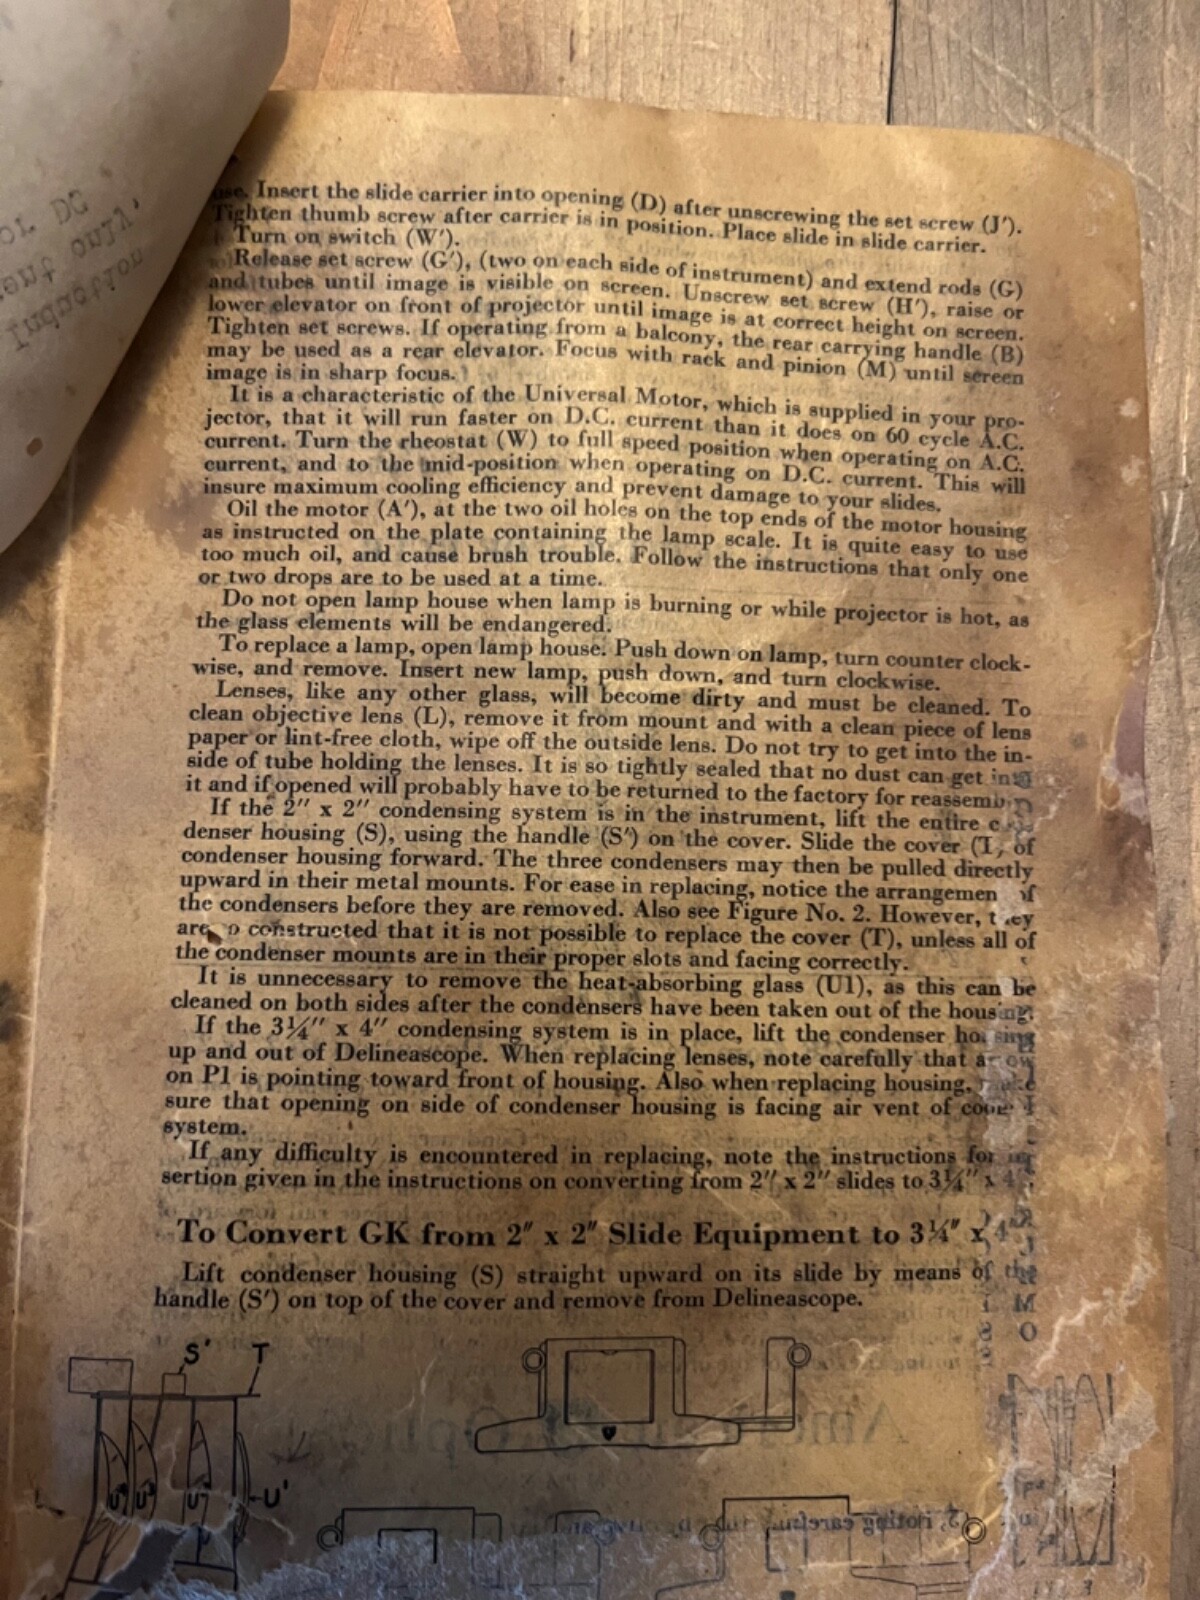 Insert the slide carrier into opening (D) after unscrewing the set screw (J′).
Tighten thumb screw after carrier is in position. Place slide in slide carrier.
Turn on switch (W′).
Release set screw (G′), (two on each side of instrument) and extend rods (G)
and tubes until image is visible on screen. Unscrew set screw (H′), raise or
lower elevator on front of projector until image is at correct height on screen.
Tighten set screws. If operating from a balcony, the rear carrying handle (B)
may be used as a rear elevator. Focus with rack and pinion (M) until screen
image is in sharp focus.
It is a characteristic of the Universal Motor, which is supplied in your pro-
jector, that it will run faster on D.C. current than it does on 60 cycle A.C.
current. Turn the rheostat (W) to full speed position when operating on A.C.
current, and to the mid-position when operating on D.C. current. This will
insure maximum cooling efficiency and prevent damage to your slides.
Oil the motor (A′), at the two oil holes on the top ends of the motor housing
as instructed on the plate containing the lamp scale. It is quite easy to use
too much oil, and cause brush trouble. Follow the instructions that only one
or two drops are to be used at a time.
Do not open lamp house when lamp is burning or while projector is hot, as
the glass elements will be endangered.
To replace a lamp, open lamp house. Push down on lamp, turn counter clock-
wise, and remove. Insert new lamp, push down, and turn clockwise.
Lenses, like any other glass, will become dirty and must be cleaned. To
clean objective lens (L), remove it from mount and with a clean piece of lens
paper or lint-free cloth, wipe off the outside lens. Do not try to get into the in-
side of tube holding the lenses. It is so tightly sealed that no dust can get into
it and if opened will probably have to be returned to the factory for
If the 2″ x 2″ condensing system is in the instrument, lift the entire
denser housing (S), using the handle (S′) on the cover. Slide the cover of
condenser housing forward. The three condensers may then be pulled directly
upward in their metal mounts. For ease in replacing, notice the
the condensers before they are removed. Also see Figure No. 2. However,
are constructed that it is not possible to replace the cover (T), unless all of
the condenser mounts are in their proper slots and facing correctly.
It is unnecessary to remove the heat-absorbing glass (U1), as this can be
cleaned on both sides after the condensers have been taken out of the housing.
If the 3¼″ x 4″ condensing system is in place, lift the condenser
up and out of Delineascope. When replacing lenses, note carefully that
on P1 is pointing toward front of housing. Also when replacing housing,
sure that opening on side of condenser housing is facing air vent of
system.
If any difficulty is encountered in replacing, note the instructions for
sertion given in the instructions on converting from 2″ x 2″ slides to 3¼″ x
To Convert GK from 2″ x 2″ Slide Equipment to 3¼″ x 4″
Lift condenser housing (S) straight upward on its slide by means of the
handle (S′) on top of the cover and remove from Delineascope.
S′ T
U′